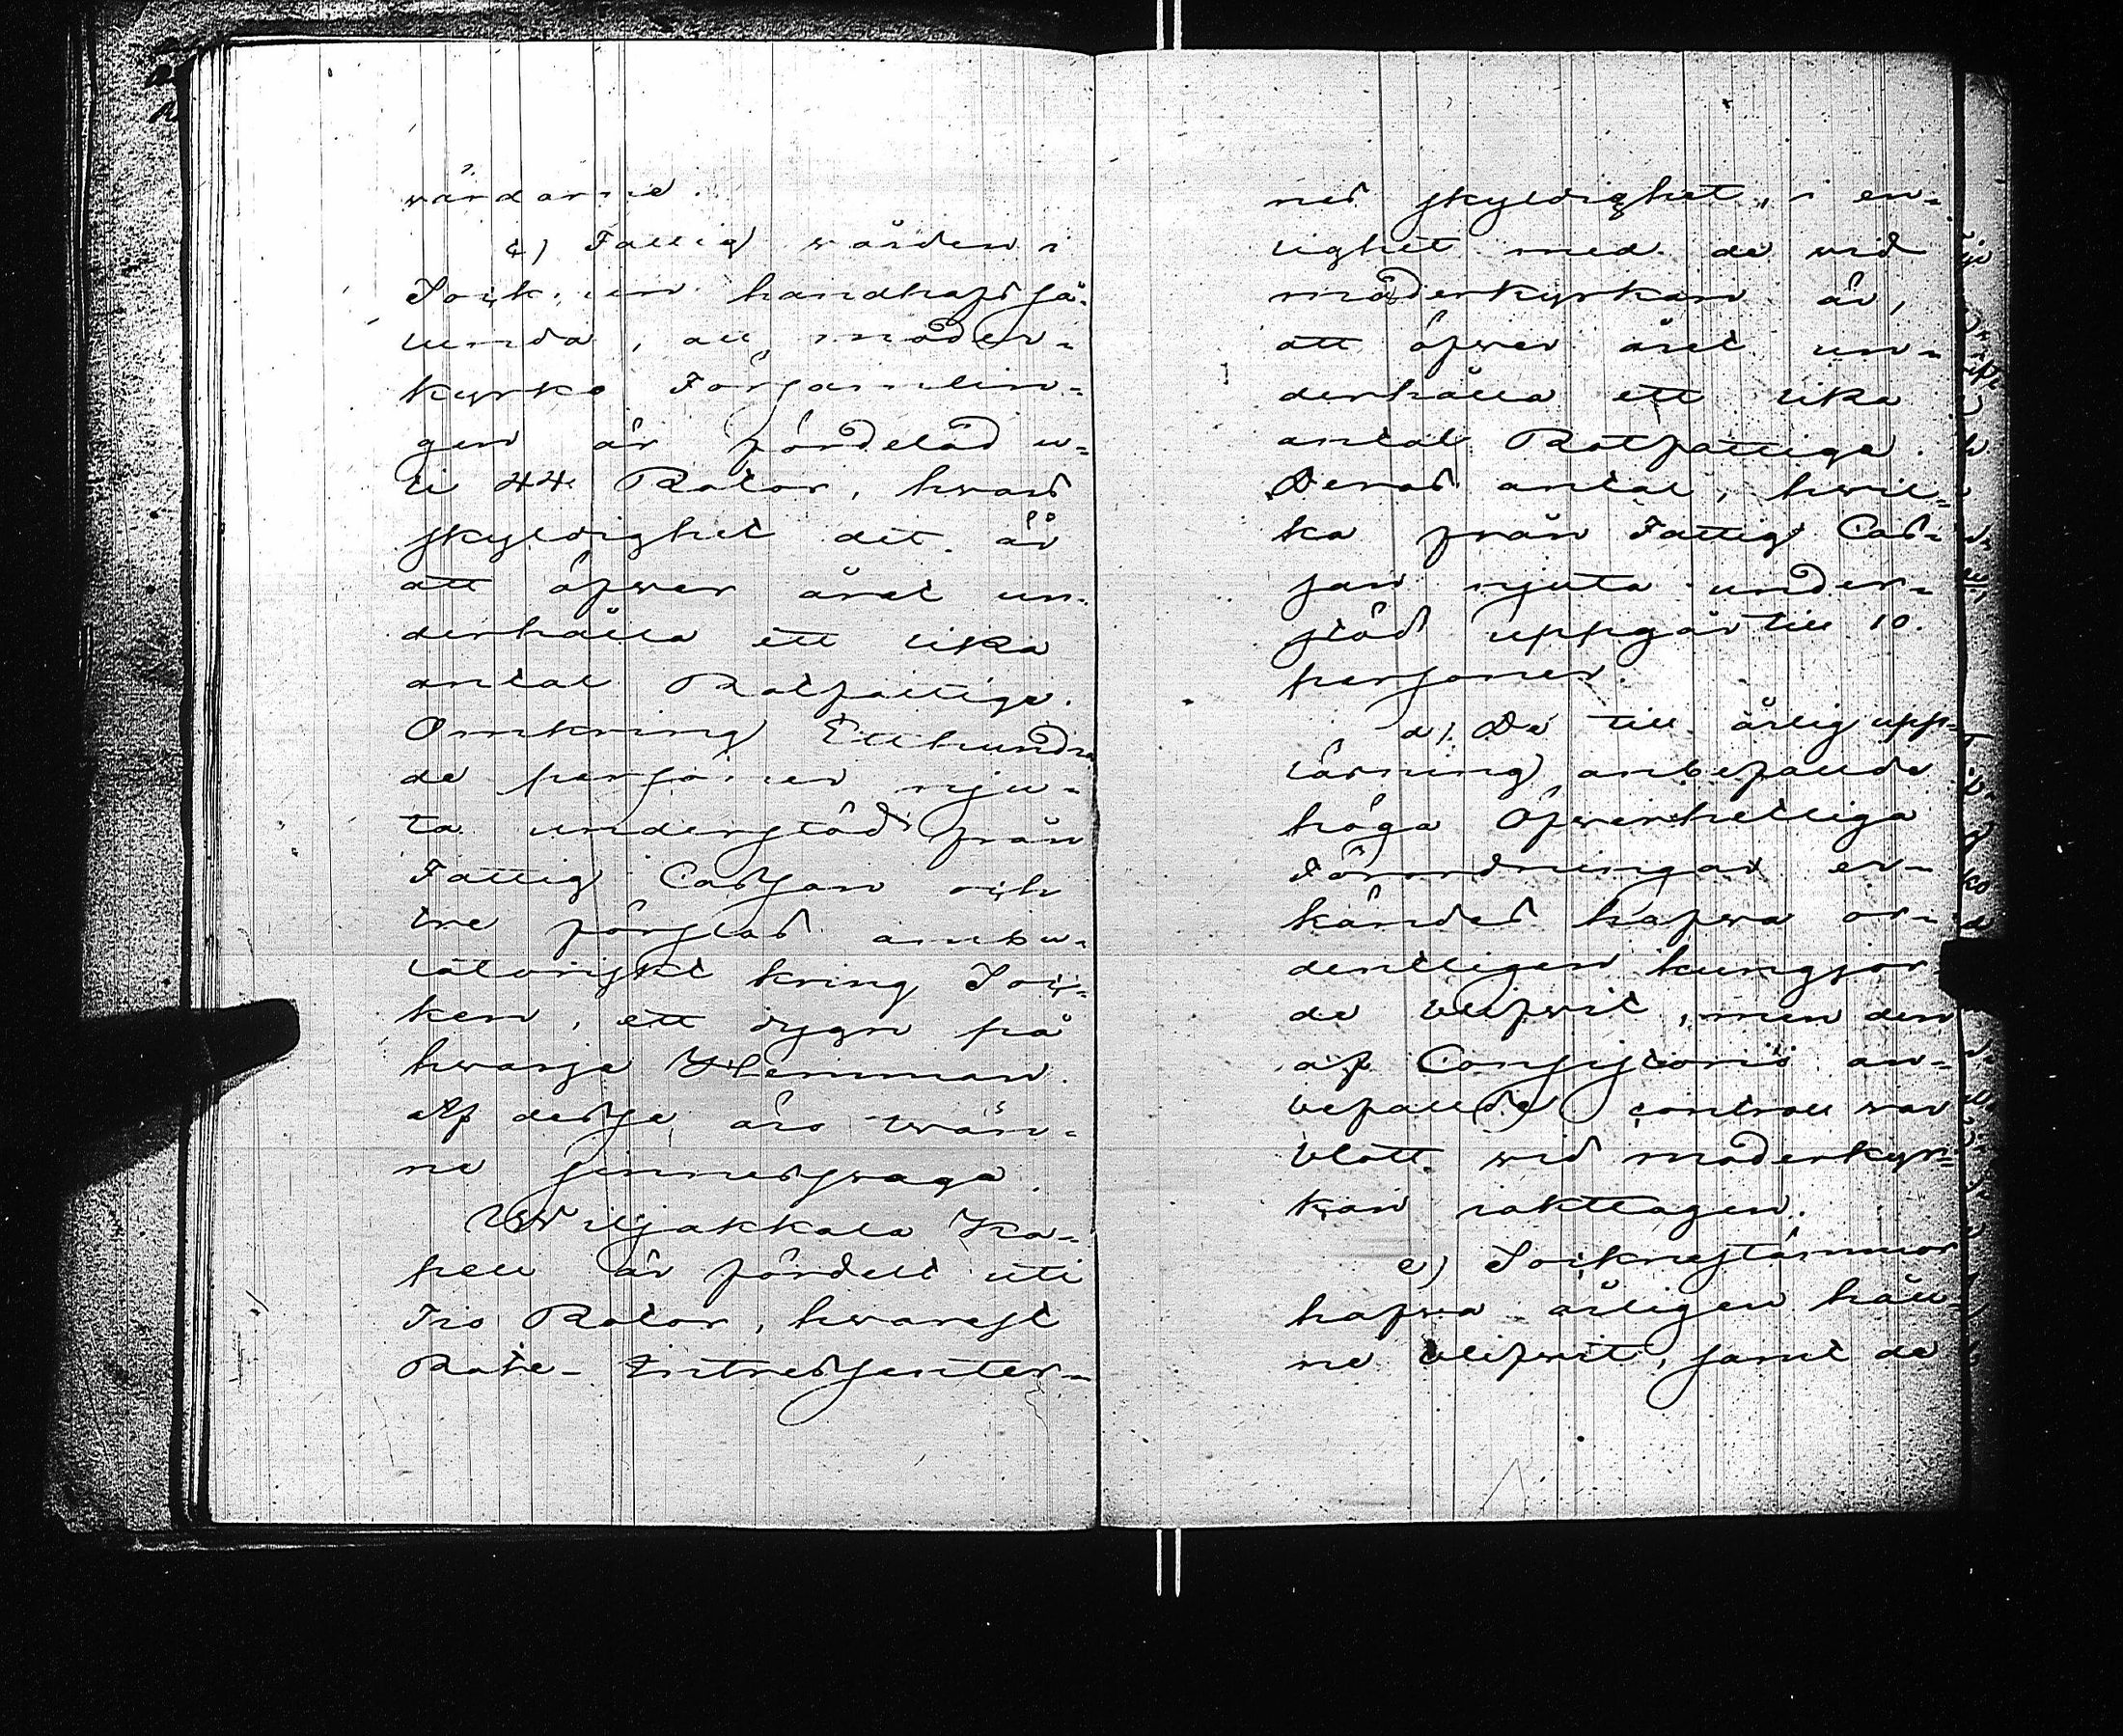 vårdarne.
c) Fattig vården i
Sock:nen handhafs så¬
lunda, att moder¬
kyrko Församlin¬
gen är fördelad u¬
ti 44 Rotor, hvars
skyldighet det är
att öfver året un¬
derhålla ett lika
antal Rotfattige.
Omkring Etthundra
de personer nju¬
ta understöd från
Fattig Cassan och
tre förslas ambu¬
latoriskt kring Soc¬
ken, ett dygn på
hvarje Hemman.
Af desse äro tvän¬
ne sinnessvaga.
Wiljakkala Ka¬
pell är fördelt uti
Tio Rotor, hvarest
Rote-Intressenter¬
nes skyldighet, i en¬
lighet med de vid
moderkyrkan är,
att öfver året un¬
derhålla ett lika
antal Rotfattige.
Deras antal, hvil¬
ka från Fattig Cas¬
san njuta under¬
stöd uppgår till 10.
personer.
d) De till årlig upp¬
läsning anbefallde
höga Öfverhetliga
Förordningar er¬
kändes hafva or¬
dentligen kungjor¬
de blifvit, men den
af Consistorii an¬
befallde controll var
blott vid moderkyr¬
kan iakttagen.
e) Socknestämmor
hafva årligen håll¬
ne blifvit, samt de